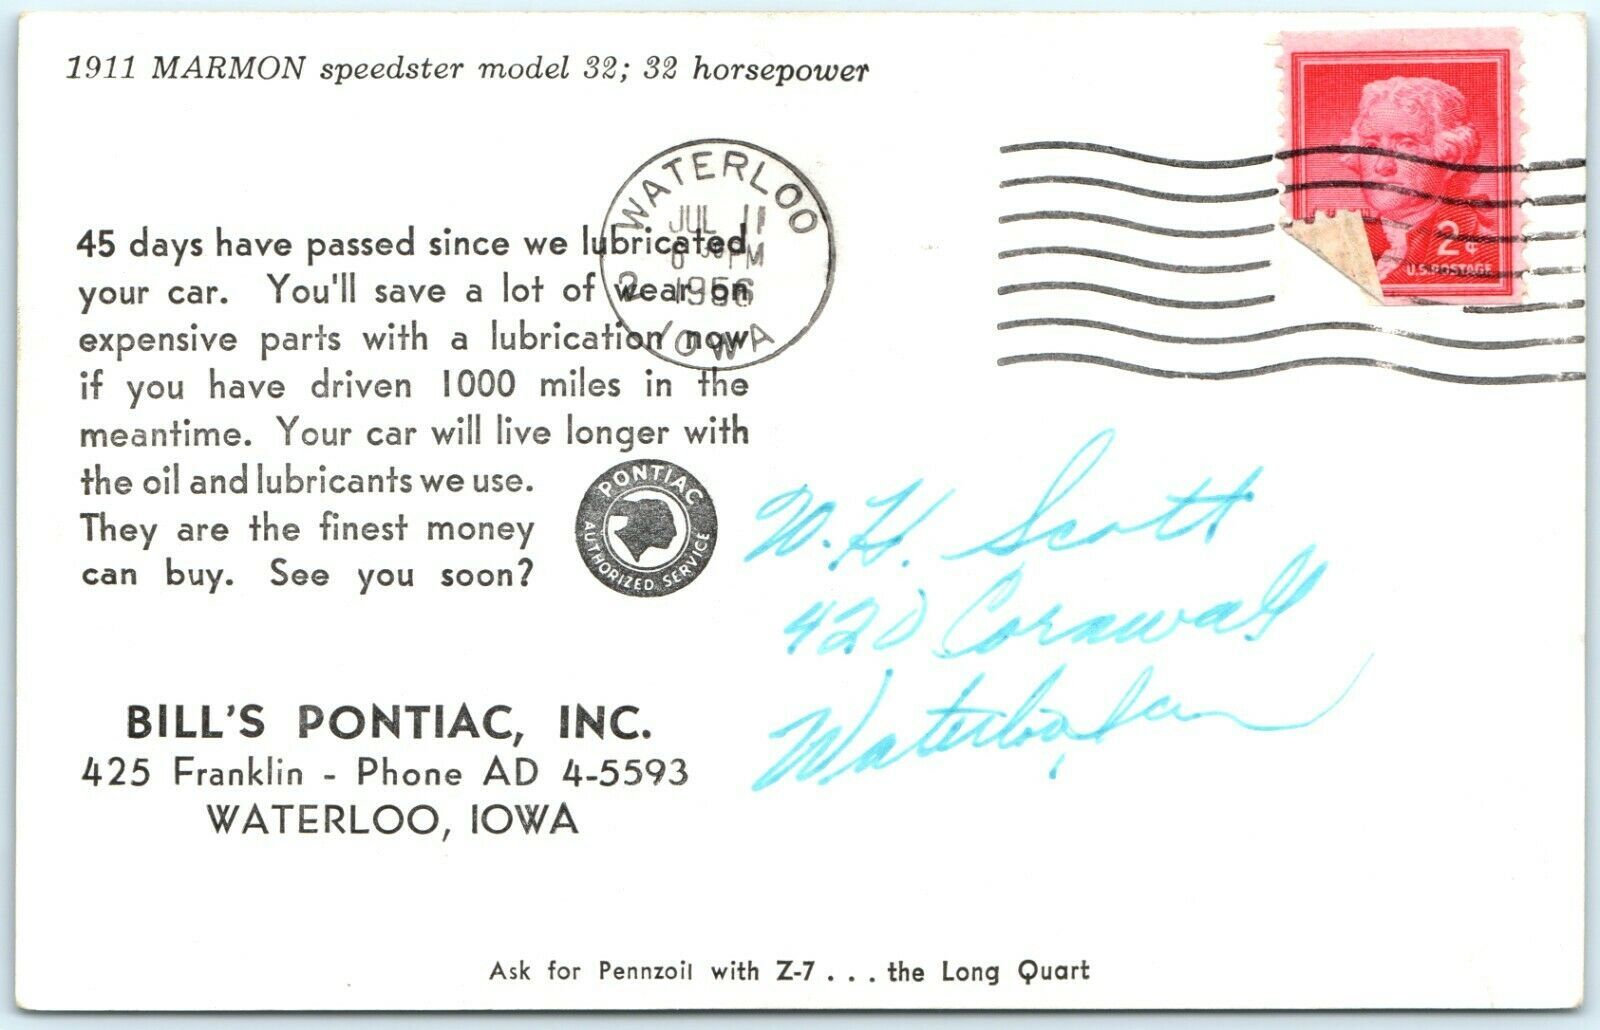 1911 MARMON speedster model 32; 32 horsepower
WATERLOO
JUL 11
PM
1956
2 IOWA
2¢
U.S. POSTAGE
45 days have passed since we lubricated
your car. You'll save a lot of wear on
expensive parts with a lubrication now
if you have driven 1000 miles in the
meantime. Your car will live longer with
the oil and lubricants we use.
They are the finest money
can buy. See you soon?
PONTIAC
AUTHORIZED SERVICE
W. H. Scott
420 Cornwall
Waterloo, Ia
BILL'S PONTIAC, INC.
425 Franklin - Phone AD 4-5593
WATERLOO, IOWA
Ask for Pennzoil with Z-7 . . . the Long Quart